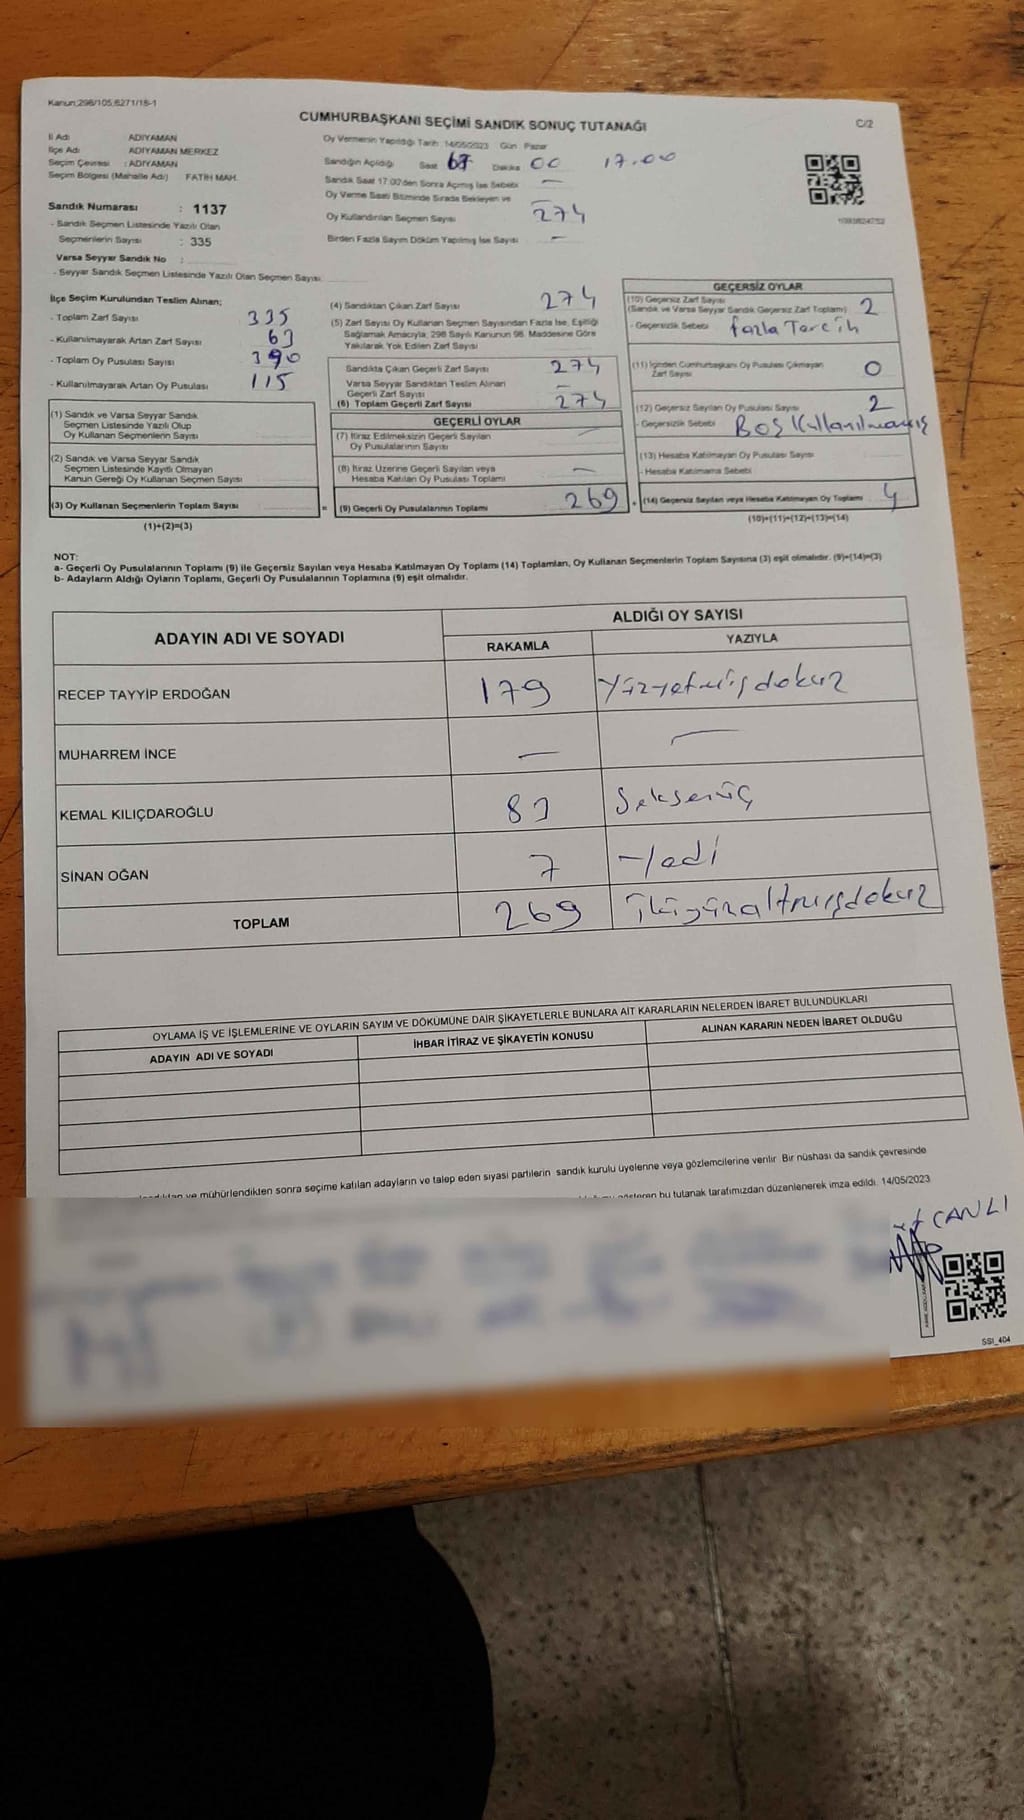 Kanun:298/105,6271/18-1
CUMHURBAŞKANI SEÇİMİ SANDIK SONUÇ TUTANAĞI
C/2
İl Adı ADIYAMAN
İlçe Adı ADIYAMAN MERKEZ
Seçim Çevresi : ADIYAMAN
Seçim Bölgesi (Mahalle Adı) FATİH MAH.
Sandık Numarası : 1137
- Sandık Seçmen Listesinde Yazılı Olan
Seçmenlerin Sayısı : 335
Varsa Seyyar Sandık No :
- Seyyar Sandık Seçmen Listesinde Yazılı Olan Seçmen Sayısı
Oy Vermenin Yapıldığı Tarih 14/05/2023 Gün Pazar
Sandığın Açıldığı Saat Dakika 00 17.00
Sandık Saat 17.00'den Sonra Açılmış İse Sebebi —
Oy Verme Saati Bitiminde Sırada Bekleyen ve
Oy Kullandırılan Seçmen Sayısı 274
Birden Fazla Sayım Döküm Yapılmış İse Sayısı —
İlçe Seçim Kurulundan Teslim Alınan;
- Toplam Zarf Sayısı 335
- Kullanılmayarak Artan Zarf Sayısı 63
- Toplam Oy Pusulası Sayısı 390
- Kullanılmayarak Artan Oy Pusulası 115
(1) Sandık ve Varsa Seyyar Sandık
Seçmen Listesinde Yazılı Olup
Oy Kullanan Seçmenlerin Sayısı
(2) Sandık ve Varsa Seyyar Sandık
Seçmen Listesinde Kayıtlı Olmayan
Kanun Gereği Oy Kullanan Seçmen Sayısı
(3) Oy Kullanan Seçmenlerin Toplam Sayısı =
(1)+(2)=(3)
(4) Sandıktan Çıkan Zarf Sayısı 274
(5) Zarf Sayısı Oy Kullanan Seçmen Sayısından Fazla İse, Eşitliği
Sağlamak Amacıyla, 298 Sayılı Kanunun 98. Maddesine Göre
Yakılarak Yok Edilen Zarf Sayısı
Sandıkta Çıkan Geçerli Zarf Sayısı 274
Varsa Seyyar Sandıktan Teslim Alınan
Geçerli Zarf Sayısı —
(6) Toplam Geçerli Zarf Sayısı 274
GEÇERLİ OYLAR
(7) İtiraz Edilmeksizin Geçerli Sayılan
Oy Pusulalarının Sayısı —
(8) İtiraz Üzerine Geçerli Sayılan veya
Hesaba Katılan Oy Pusulası Toplamı —
(9) Geçerli Oy Pusulalarının Toplamı 269 +
GEÇERSİZ OYLAR
(10) Geçersiz Zarf Sayısı
(Sandık ve Varsa Seyyar Sandık Geçersiz Zarf Toplamı) 2
- Geçersizlik Sebebi fazla Tercih
(11) İçinden Cumhurbaşkanı Oy Pusulası Çıkmayan
Zarf Sayısı 0
(12) Geçersiz Sayılan Oy Pusulası Sayısı 2
- Geçersizlik Sebebi Boş Kullanılmamış
(13) Hesaba Katılmayan Oy Pusulası Sayısı
- Hesaba Katılmama Sebebi
(14) Geçersiz Sayılan veya Hesaba Katılmayan Oy Toplamı 4
(10)+(11)+(12)+(13)=(14)
NOT:
a- Geçerli Oy Pusulalarının Toplamı (9) ile Geçersiz Sayılan veya Hesaba Katılmayan Oy Toplamı (14) Toplamları, Oy Kullanan Seçmenlerin Toplam Sayısına (3) eşit olmalıdır. (9)+(14)=(3)
b- Adayların Aldığı Oyların Toplamı, Geçerli Oy Pusulalarının Toplamına (9) eşit olmalıdır.
ADAYIN ADI VE SOYADI
ALDIĞI OY SAYISI
RAKAMLA YAZIYLA
RECEP TAYYİP ERDOĞAN 179 Yüzyetmişdokuz
MUHARREM İNCE — —
KEMAL KILIÇDAROĞLU 83 Seksenüç
SİNAN OĞAN 7 Yedi
TOPLAM 269 ikiyüzaltmışdokuz
OYLAMA İŞ VE İŞLEMLERİNE VE OYLARIN SAYIM VE DÖKÜMÜNE DAİR ŞİKAYETLERLE BUNLARA AİT KARARLARIN NELERDEN İBARET BULUNDUKLARI
ADAYIN ADI VE SOYADI İHBAR İTİRAZ VE ŞİKAYETİN KONUSU ALINAN KARARIN NEDEN İBARET OLDUĞU
ve mühürlendikten sonra seçime katılan adayların ve talep eden siyasi partilerin sandık kurulu üyelerine veya gözlemcilerine verilir. Bir nüshası da sandık çevresinde
gösteren bu tutanak tarafımızdan düzenlenerek imza edildi. 14/05/2023
CANLI
SSI_404